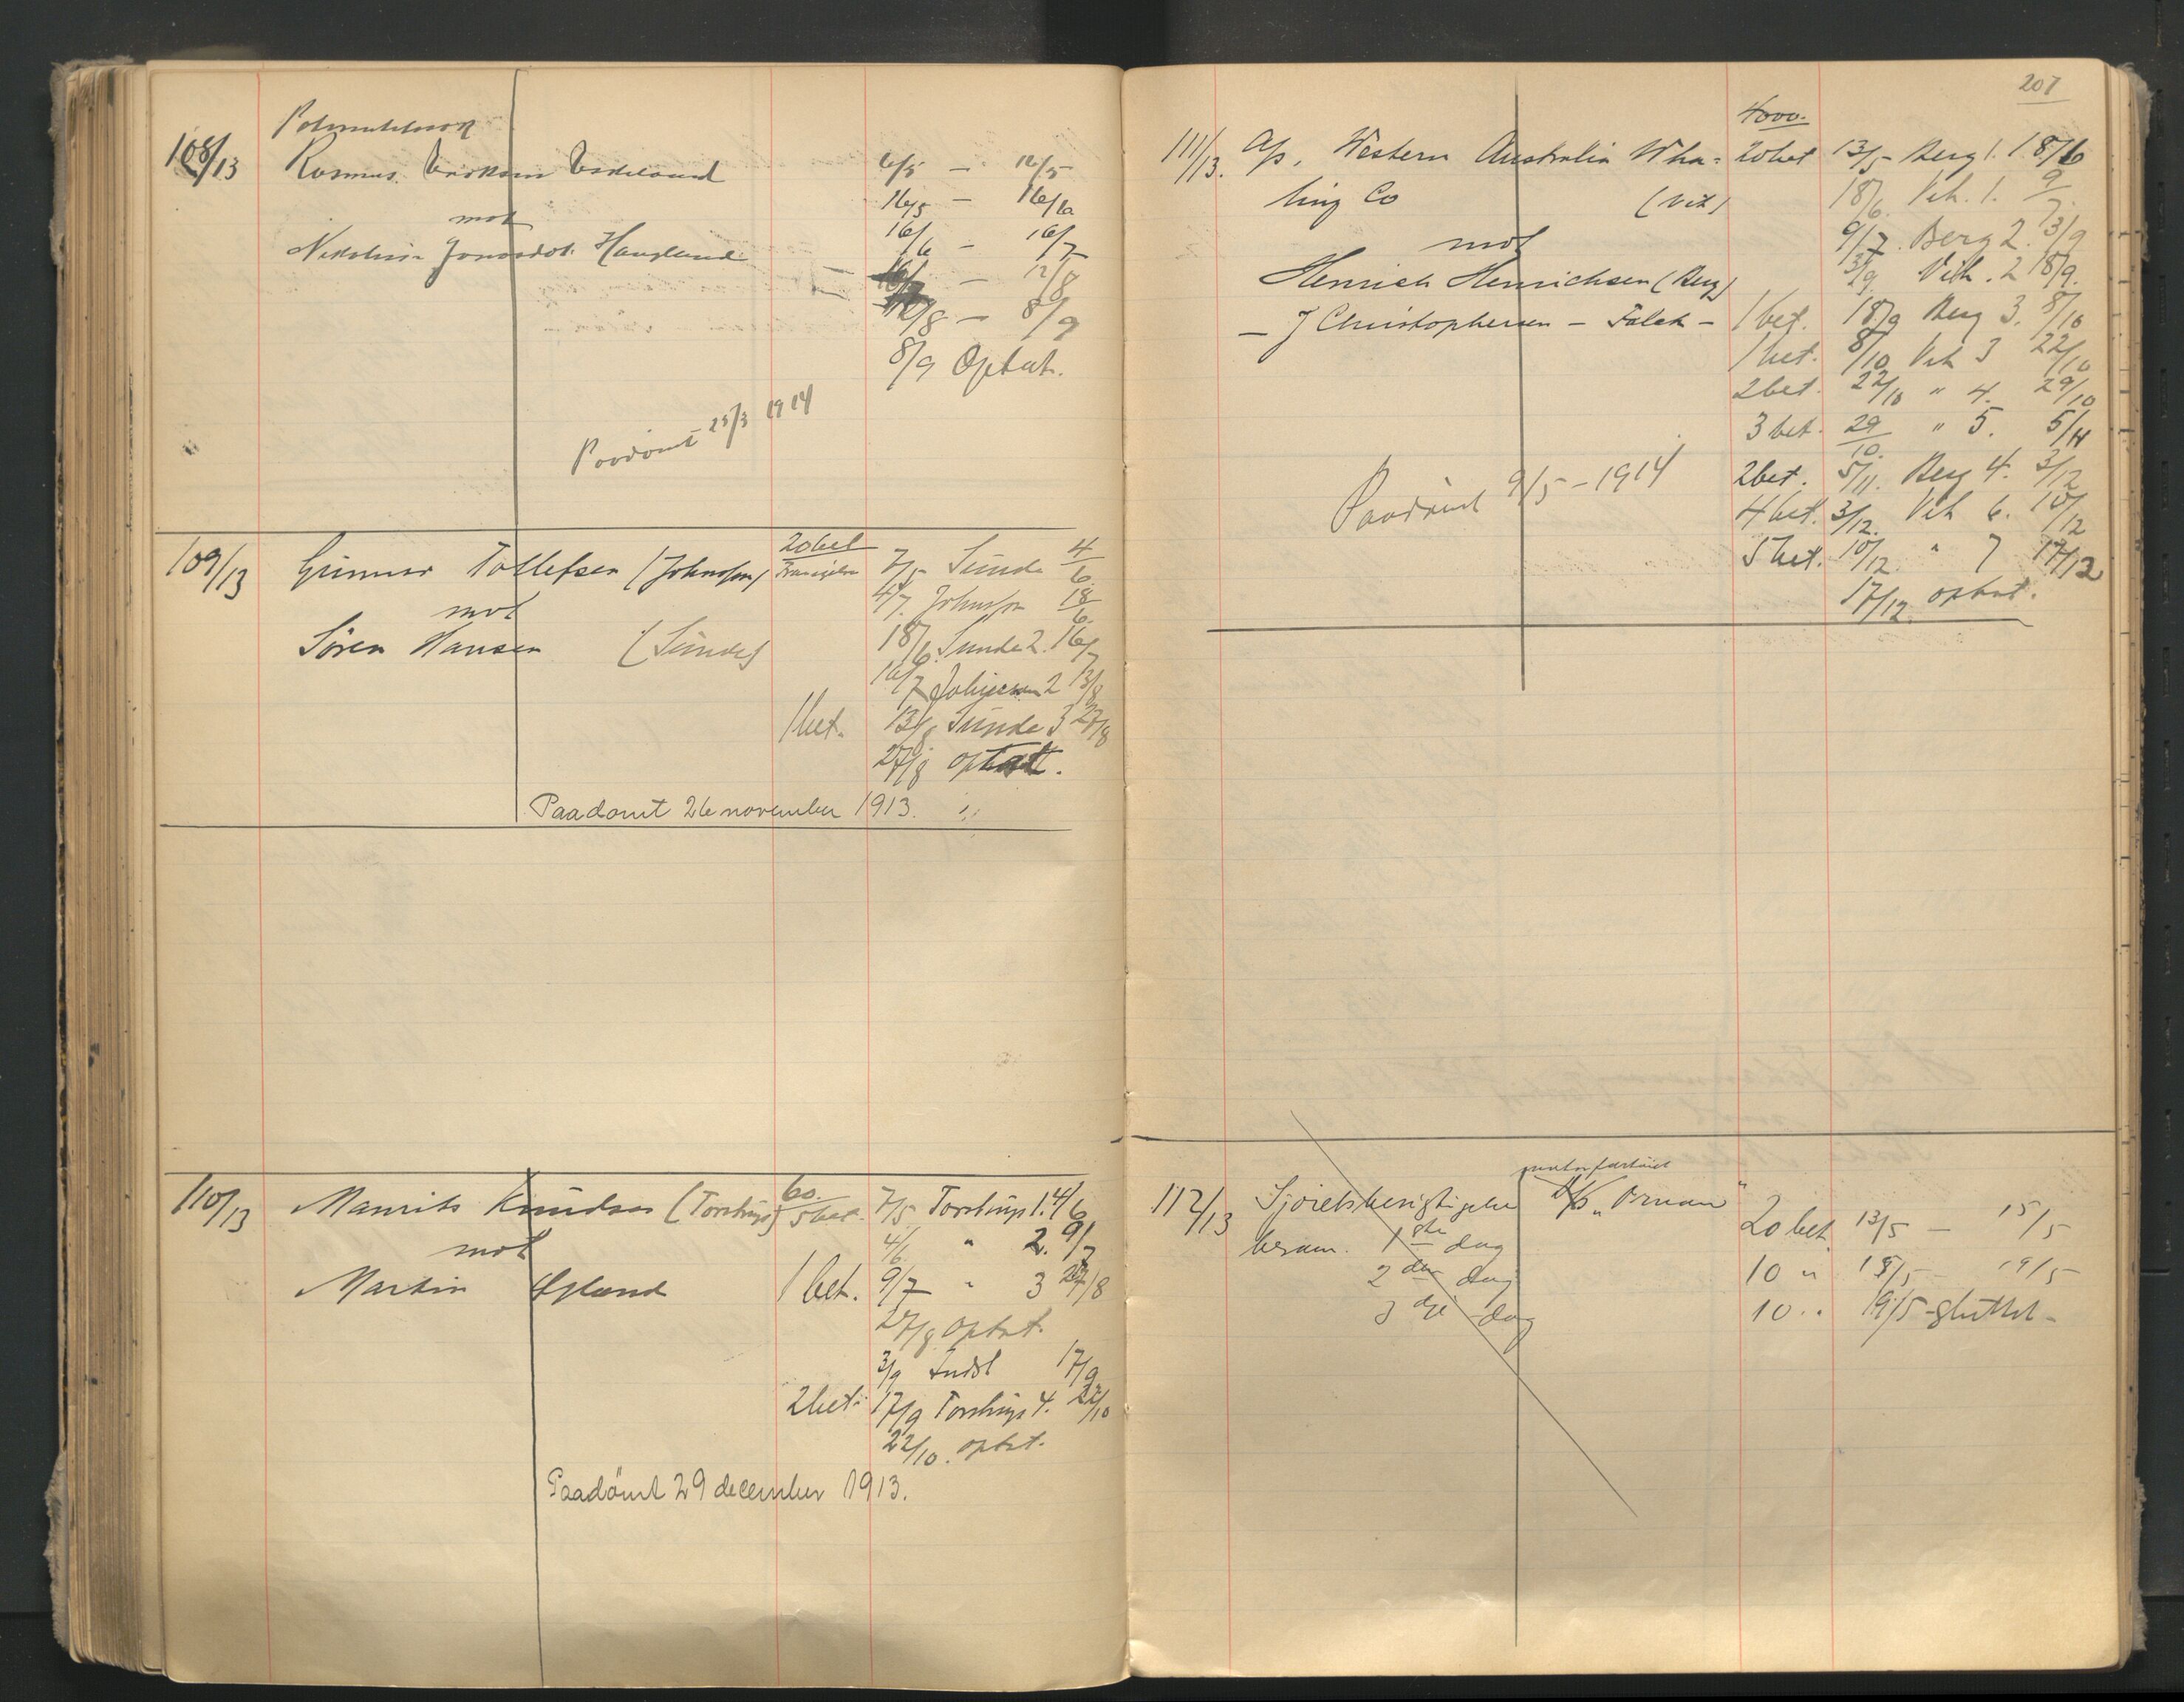 108/13
Rasmus Eriksen Eskeland
mot
Nikoline Jonasdot. Haugland
6/5 — 16/5
16/5 — 16/6
16/6 — 16/7
— 12/8
12/8 — 8/9
8/9 Optat.
Paadömt 25/3 1914
109/13 Gunnar Tollefsen (Johnsen)
mot
Sören Hansen (Sunde)
20 bet
7/5 Sunde 4/6
4/7. Johnsen 18/6.
18/6. Sunde 2. 16/7
16/7 Johnsen 2 13/8
1 bet. 13/8 Sunde 3 27/8
27/8 optat.
Paadömt 26 november 1913.
110/13 Maurits Knudsen (Torstrup)
mot
Martin Øgland
60.
5 bet. 7/5 Torstrup 1. 4/6
4/6 " 2. 9/7
1 bet. 9/7 " 3 27/8
27/8 optat.
3/9 Indst 17/9
2 bet. 17/9 Torstrup 4. 22/10
22/10. optat.
Paadömt 29 december 1913.
207
111/13. A/s. Western Australia Wha=
ling Co (Vik)
mot
Henrich Henrichsen (Berg)
— J Christophersen — Falck —
4000.
20 bet 13/5 Berg 1. 18/6
18/6. Vik. 1. 9/7.
9/7. Berg 2. 3/9
3/9. Vik. 2 18/9.
1 bet. 18/9 Berg 3. 8/10
1 bet. 8/10 Vik 3 22/10
2 bet. 22/10 " 4. 29/10
3 bet. 29/10. " 5. 5/11
2 bet. 5/11. Berg 4. 3/12
4 bet. 3/12. Vik 6. 10/12
5 bet. 10/12. " 7 17/12
17/12. optat.
Paadömt 9/5 - 1914
112/13 Sjöretsbesigtigelse "Ornan"
beram. 1ste dag
2den dag
3dje dag
20 bet. 13/5 — 15/5
10 " 15/5 — 19/5
10 " 19/5 sluttet —